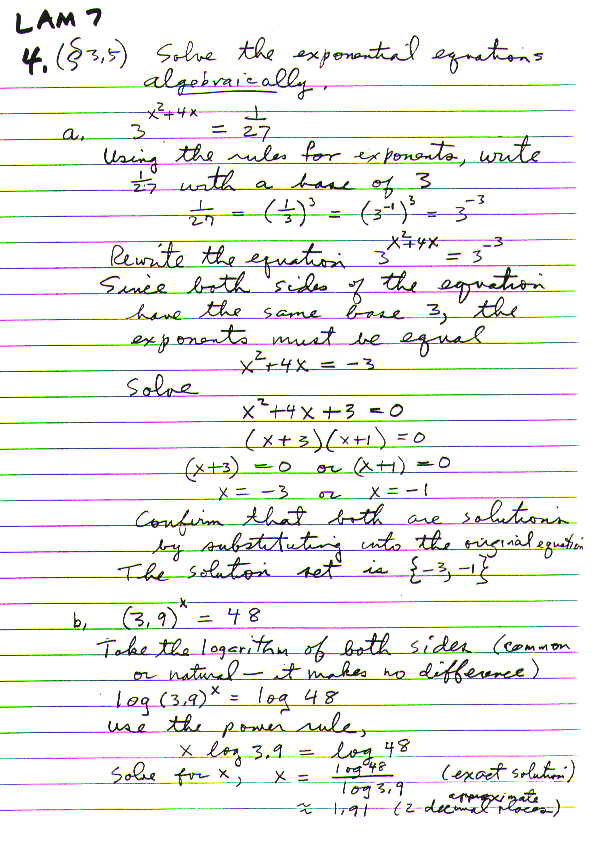 LAM 7
4. (§3,5) Solve the exponential equations
algebraically.
a. 3^(x²+4x) = 1/27
Using the rules for exponents, write
1/27 with a base of 3
1/27 = (1/3)³ = (3⁻¹)³ = 3⁻³
Rewrite the equation 3^(x²+4x) = 3⁻³
Since both sides of the equation
have the same base 3, the
exponents must be equal
x²+4x = -3
Solve
x²+4x+3 = 0
(x+3)(x+1) = 0
(x+3) = 0 or (x+1) = 0
x = -3 or x = -1
Confirm that both are solutions
by substituting into the original equation
The solution set is {-3, -1}
b, (3,9)^x = 48
Take the logarithm of both sides (common
or natural — it makes no difference)
log (3,9)^x = log 48
use the power rule,
x log 3.9 = log 48
Solve for x, x = log 48 / log 3,9 (exact solution)
≈ 1,91 (2 decimal places) approximate